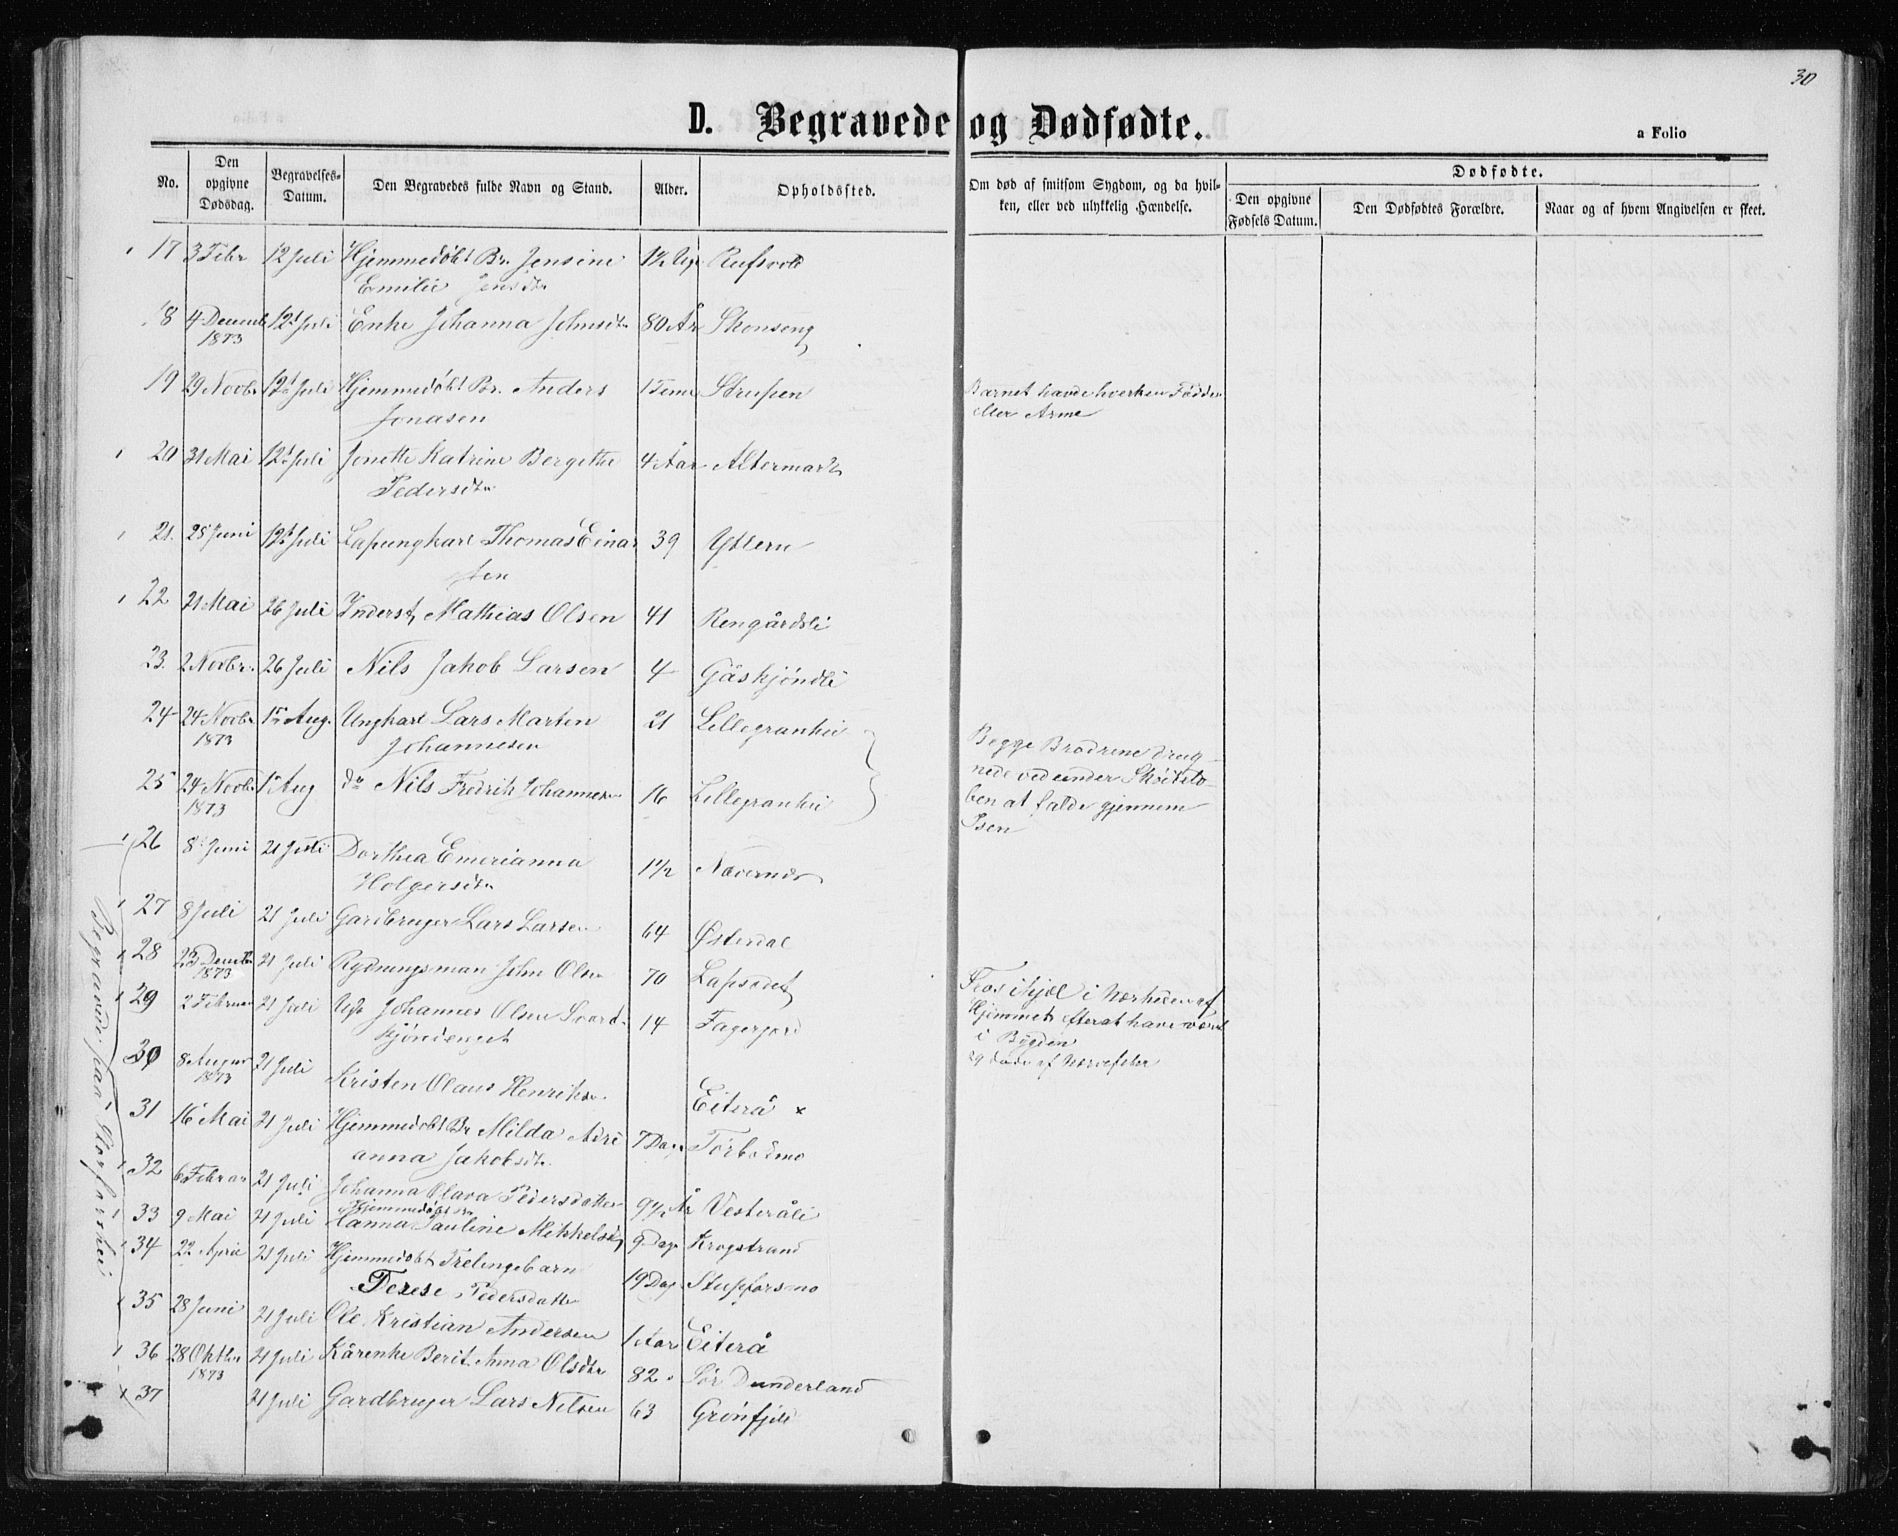 30
D. Begravede og Dødfødte.
a Folio
No.
Den opgivne Dødsdag.
Begravelses-Datum.
Den Begravedes fulde Navn og Stand.
Alder.
Opholdssted.
Om død af smitsom Sygdom, og da hvil-
ken, eller ved ulykkelig Hændelse.
Dødfødte.
Den opgivne Fødsels Datum.
Den Dødfødtes Forældre.
Naar og af hvem Angivelsen er skeet.
17 3 Febr 12 Juli Hjemmedøbt Br. Jensine 1½ Uge
Emilie Jensdtr
18 4 Decemb 12te Juli Enke Johanna Johnsdtr 80 År Skonseng
1873
19 29 Novbr 12te Juli Hjemmedøbt Br. Anders 1 Time Strupen Barnet havde hverken Fødder
Jonasen eller Arme
20 31 Mai 12te Juli Jonette Katrine Bergithe 4 Aar Altermark
Pedersdtr
21. 28 Juni 12te Juli Lapungkarl Thomas Einar 39 Yttern
sen
22 21 Mai 26 Juli Inderst Mathias Olsen 41 Rengårdsli
23. 2 Novbr. 26 Juli Nils Jakob Larsen 4 Gåskjøndli
24 24 Novbr 1ste Aug. Ungkarl Lars Marten 21 Lillegranhei
1873 Johannesen Begge Brødrene drug-
25 24 Novbr 1ste Aug do Nils Fredrik Johannesen 16 Lillegranhei nede ved under Skøitelø-
1873 ben at falde gjennem
Isen
26 8de Juni 21 Juli Dorthea Emerianna 1½ Nævernes
Holgersdtr
27 8 Juli 21 Juli Gardbruger Lars Larsen 64 Østerdal
28 23 Decemb 21 Juli Rydningsman John Olsen 70
1873
29 2 Februar 21 Juli Johannes Olsen Svart- 14 Fagerjord Frøs ihjæl i Nærheden af
kjøndenget Hjemmet efterat have været
i Bygden
30 8 August 21 Juli Kristen Olaus Henriksen Eiterå × døde af Nervefeber
1873
31 16 Mai 21 Juli Hjemmedøbt Br Milda Adri 7 Dage
anna Jakobsdtr.
32 6 Februar 21 Juli Johanna Olava Pedersdatter 9½ År Vesteråli
33 9 Mai 21 Juli Hjemmedøbt Br
Hanna Pauline Mikkelsdtr 9 Dage Krogstrand
34 22 April 21 Juli Hjemmedøbt Trelingebarn
Terese Pedersdatter 19 Dag Stupforsmo
35 28 Juni 21 Juli Ole Kristian Andersen 1 Aar Eiterå
36 28 Oktbr 21 Juli Kårenke Berit Anna Olsdtr 82 Sør Dunderland
1873
37 21 Juli Gardbruger Lars Nilsen 63 Grønfjeld
Begravede paa Storforshei